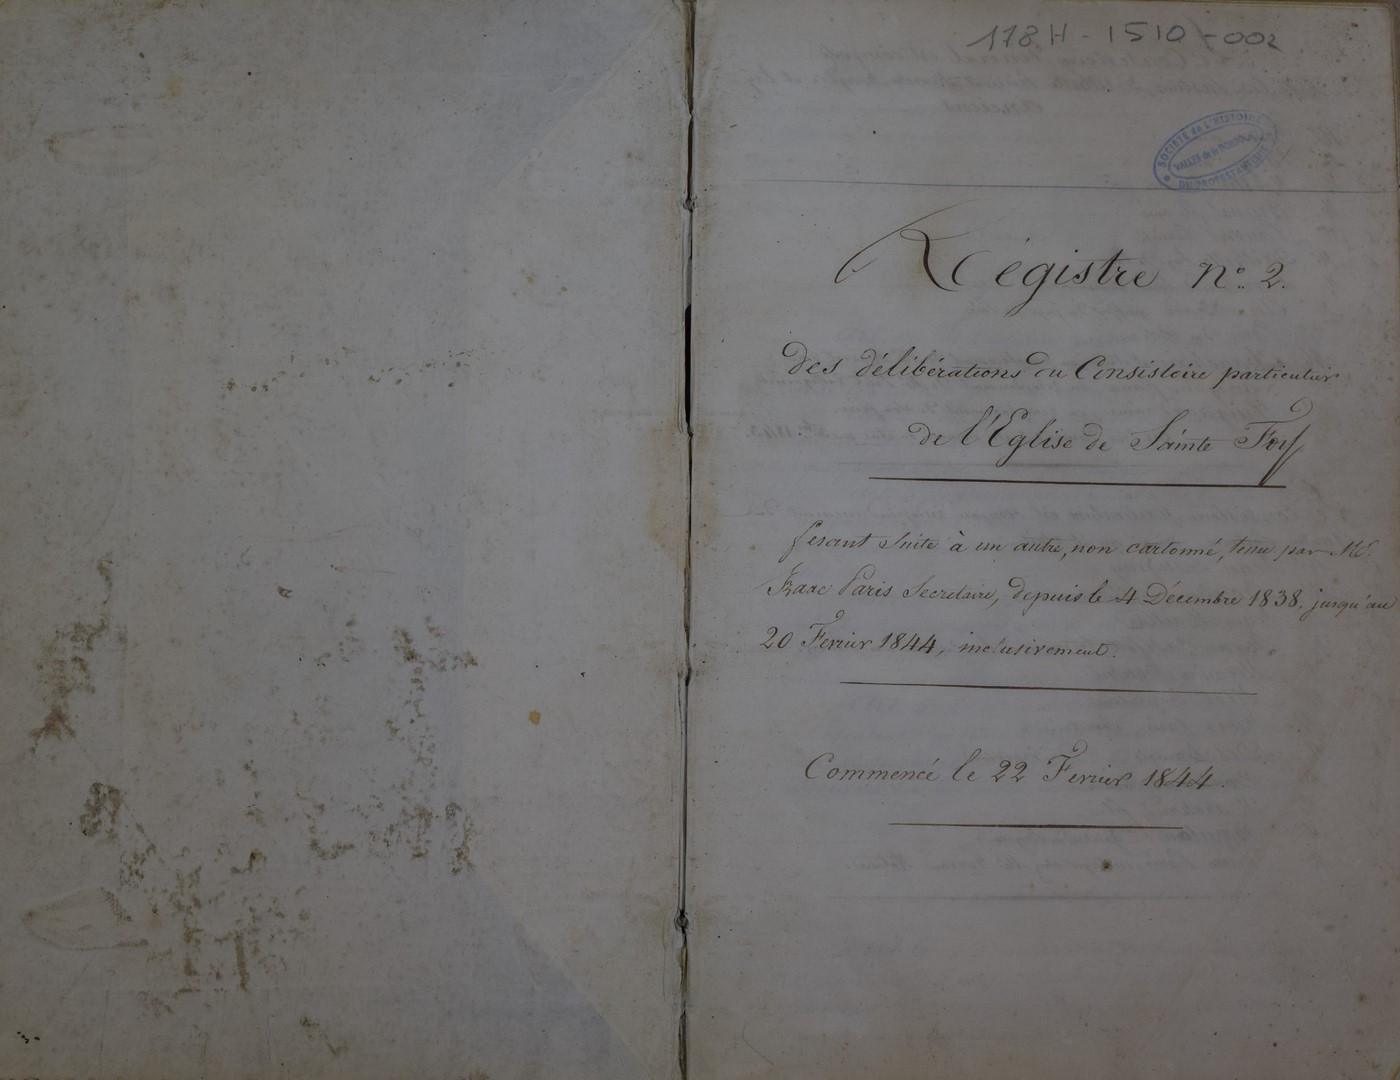 178H-1510-002
SOCIÉTÉ de L'HISTOIRE
VALLÉE de la DORDOGNE
DU PROTESTANTISME
Régistre n° 2.
des délibérations du Consistoire particulier
de l'Eglise de Sainte Foy
fesant suite à un autre, non cartonné, tenu par Mr.
Isaac Paris Secretaire, depuis le 4 Décembre 1838. jusqu'au
20 Fevrier 1844, inclusivement.
Commencé le 22 Fevrier 1844.